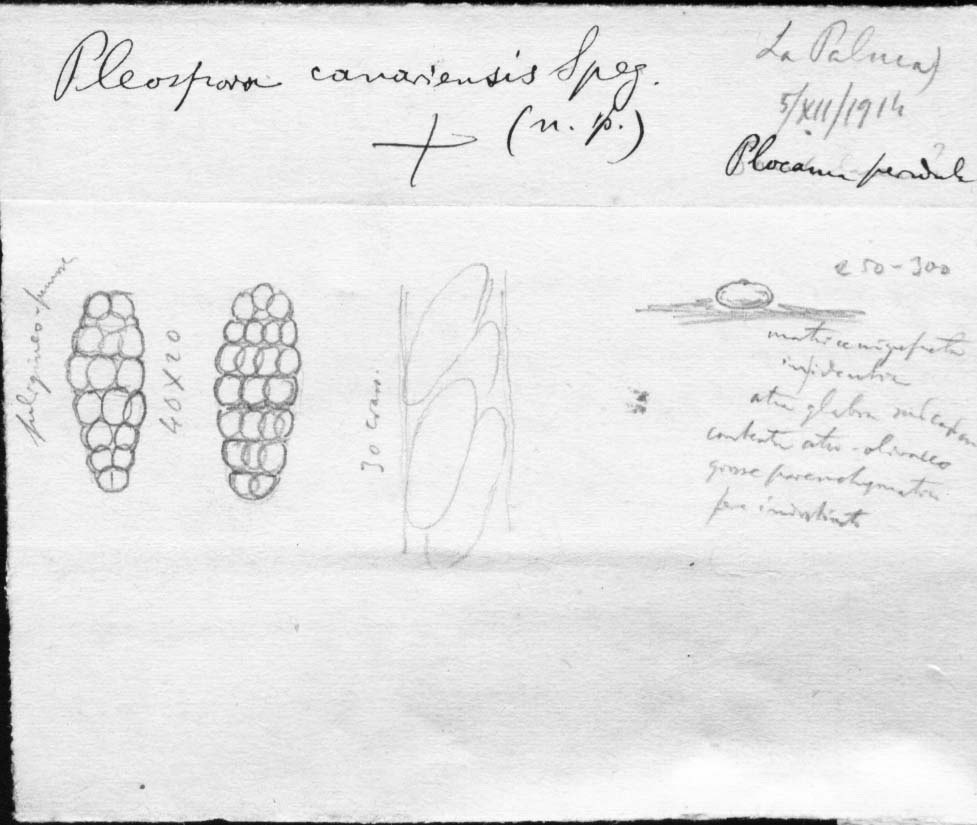 Pleospora canariensis Speg.
(n. p.)
La Palma)
5/XII/1914
Plocama pendula
fuligineo-
40x20
30 crass.
250-300
matrice nigrefacta
insidentia
atra glabra
contextu atro-olivaceo
grosse parenchymatico